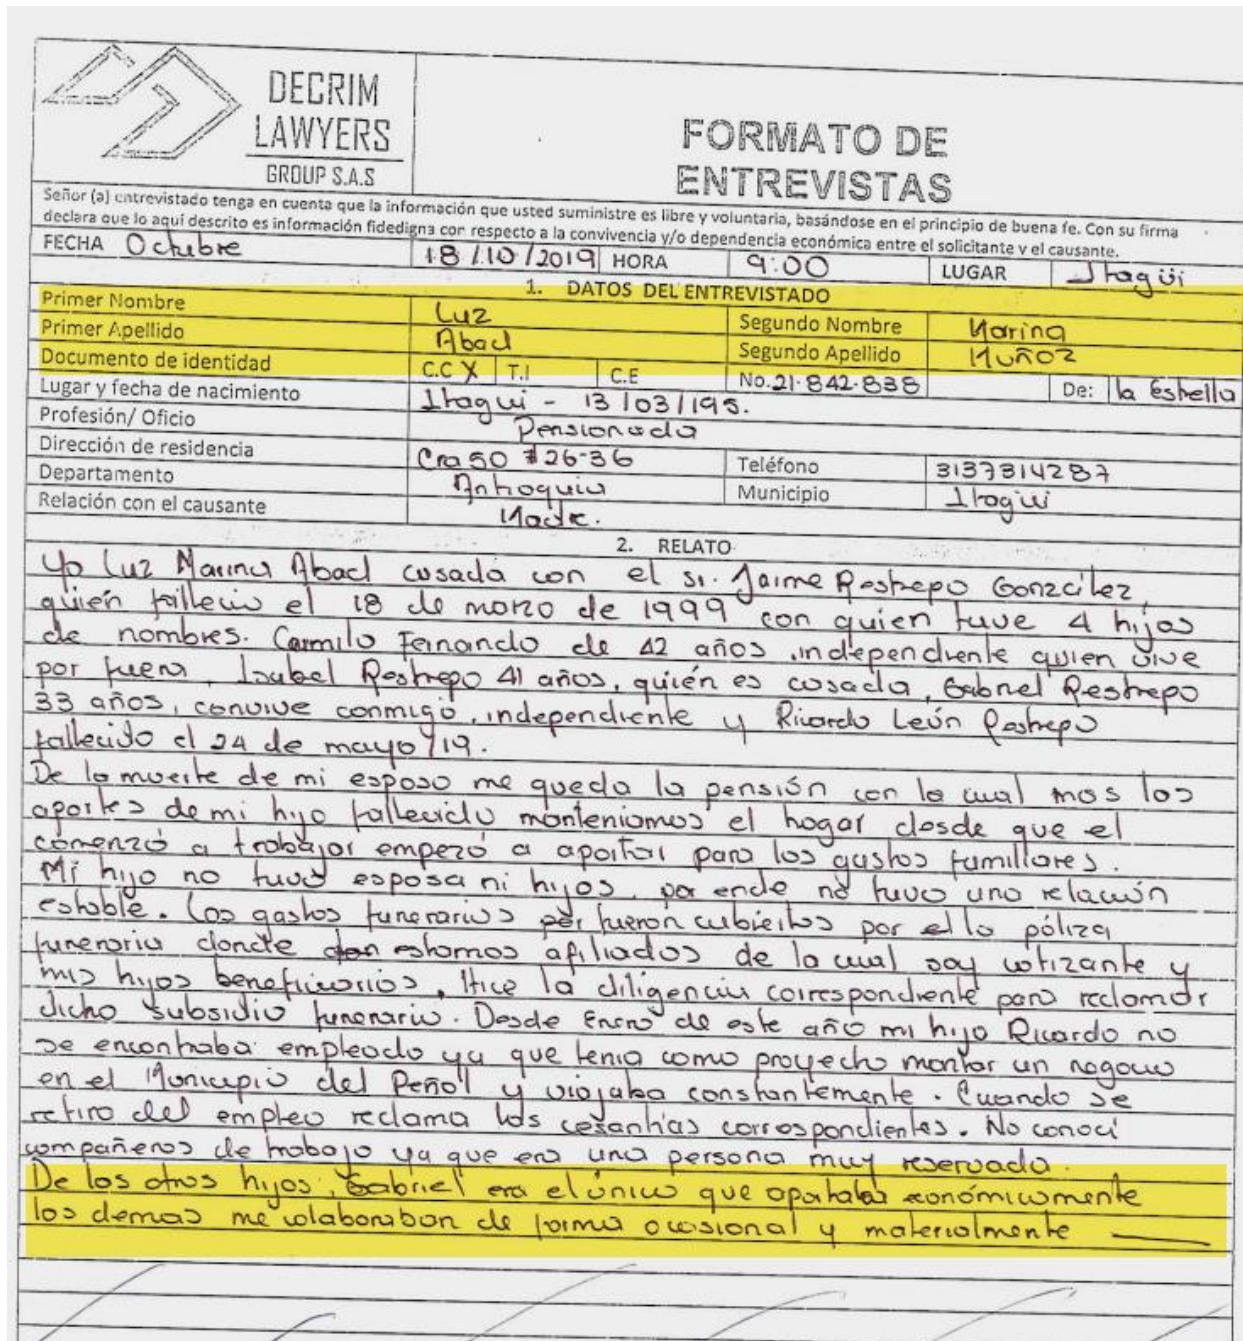 DECRIM
LAWYERS
GROUP S.A.S
FORMATO DE
ENTREVISTAS
Señor (a) entrevistado tenga en cuenta que la información que usted suministre es libre y voluntaria, basándose en el principio de buena fe. Con su firma
declara que lo aquí descrito es información fidedigna con respecto a la convivencia y/o dependencia económica entre el solicitante y el causante.
FECHA Octubre 18/10/2019 HORA 9:00 LUGAR Itagüi
1. DATOS DEL ENTREVISTADO
Primer Nombre Luz Segundo Nombre Marina
Primer Apellido Abad Segundo Apellido Muñoz
Documento de identidad C.C X T.I C.E No. 21.842.838 De: la Estrella
Lugar y fecha de nacimiento Itagui - 13/03/195.
Profesión/ Oficio Pensionada
Dirección de residencia Cra 50 #26-36 Teléfono 3137314287
Departamento Antioquia Municipio Itagui
Relación con el causante Madre.
2. RELATO
Yo Luz Marina Abad casada con el sr. Jaime Restrepo González,
quién fallecio el 18 de marzo de 1999 con quien tuve 4 hijos
de nombres. Camilo Fernando de 42 años independiente quien vive
por fuera, Isabel Restrepo 41 años, quién es casada, Gabriel Restrepo
33 años, convive conmigo, independiente y Ricardo León Restrepo
fallecido el 24 de mayo/19.
De la muerte de mi esposo me queda la pensión con la cual mas los
aportes de mi hijo fallecido manteniamos el hogar desde que el
comenzó a trabajar empezó a aportar para los gastos familiares.
Mi hijo no tuvo esposa ni hijos, por ende no tuvo una relación
estable. Los gastos funerarios fueron cubiertos por la póliza
funeraria donde estamos afiliados de la cual soy cotizante y
mis hijos beneficiarios, Hice la diligencia correspondiente para reclamar
dicho subsidio funerario. Desde Enero de este año mi hijo Ricardo no
se encontraba empleado ya que tenia como proyecto montar un negocio
en el Municipio del Peñol y viajaba constantemente. Cuando se
retiro del empleo reclama las cesantías correspondientes. No conocí
compañeros de trabajo ya que era una persona muy reservada.
De los otros hijos, Gabriel era el único que aportaba económicamente
los demas me colaboraban de forma ocasional y materialmente